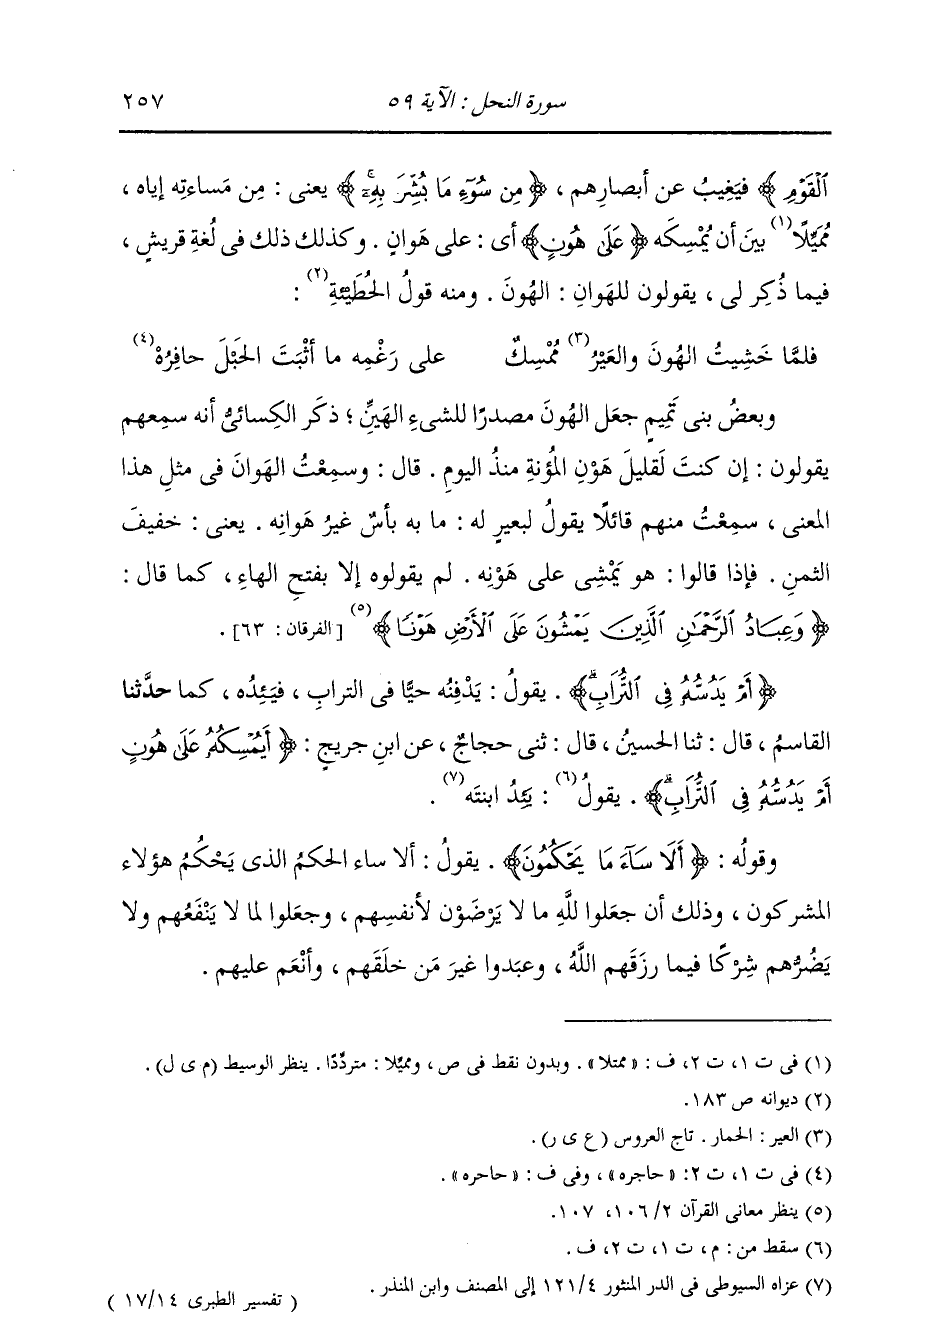 سورة النحل : الآية ٥٩ ٢٥٧
ٱلْقَوْمِ﴾ فيَغِيبُ عن أبصارِهم ، ﴿مِن سُوٓءِ مَا بُشِّرَ بِهِۦٓۚ﴾ يعنى : مِن مَساءتِه إياه ،
مُمَيِّلًا(١) بينَ أن يُمْسِكَه ﴿عَلَىٰ هُونٍ﴾ أى : على هَوانٍ . وكذلك ذلك فى لُغةِ قريشٍ ،
فيما ذُكِر لى ، يقولون للهَوانِ : الهُونَ . ومنه قولُ الحُطَيْئةِ(٢) :
فلمَّا خَشِيتُ الهُونَ والعَيْرُ(٣) مُمْسِكٌ على رَغْمِه ما أثْبَتَ الحَبْلَ حافِرُهْ(٤)
وبعضُ بنى تَمِيمٍ جعَل الهُونَ مصدرًا للشىءِ الهَيِّنِ ؛ ذكَر الكِسائىُّ أنه سمِعهم
يقولون : إن كنتَ لَقليلَ هَوْنِ المُؤنةِ منذُ اليومِ . قال : وسمِعْتُ الهَوانَ فى مثلِ هذا
المعنى ، سمِعْتُ منهم قائلًا يقولُ لبعيرٍ له : ما به بأسٌ غيرُ هَوانِه . يعنى : خفيفَ
الثمنِ . فإذا قالوا : هو يَمْشِى على هَوْنِه . لم يقولوه إلا بفتحِ الهاءِ ، كما قال :
﴿وَعِبَادُ ٱلرَّحْمَٰنِ ٱلَّذِينَ يَمْشُونَ عَلَى ٱلْأَرْضِ هَوْنًا﴾(٥) [الفرقان : ٦٣] .
﴿أَمْ يَدُسُّهُۥ فِى ٱلتُّرَابِۗ﴾ . يقولُ : يَدْفِنُه حيًّا فى الترابِ ، فيَئِدُه ، كما حدَّثنا
القاسمُ ، قال : ثنا الحسينُ ، قال : ثنى حجاجٌ ، عن ابنِ جريجٍ : ﴿أَيُمْسِكُهُۥ عَلَىٰ هُونٍ
أَمْ يَدُسُّهُۥ فِى ٱلتُّرَابِۗ﴾ . يقولُ(٦) : يَئِدُ ابنتَه(٧) .
وقولُه : ﴿أَلَا سَآءَ مَا يَحْكُمُونَ﴾ . يقولُ : ألا ساء الحكمُ الذى يَحْكُمُ هؤلاء
المشركون ، وذلك أن جعَلوا للَّهِ ما لا يَرْضَوْن لأنفسِهم ، وجعَلوا لما لا يَنْفَعُهم ولا
يَضُرُّهم شِرْكًا فيما رزَقَهم اللَّهُ ، وعبَدوا غيرَ مَن خلقَهم ، وأنْعَم عليهم .
(١) فى ت ١، ت ٢، ف : « ممتلا » . وبدون نقط فى ص ، ومميِّلا : متردِّدًا . ينظر الوسيط (م ى ل) .
(٢) ديوانه ص ١٨٣.
(٣) العير : الحمار . تاج العروس (ع ى ر) .
(٤) فى ت ١، ت ٢: « حاجره » ، وفى ف : « حاحره » .
(٥) ينظر معانى القرآن ٢/ ١٠٦، ١٠٧.
(٦) سقط من : م ، ت ١، ت ٢، ف .
(٧) عزاه السيوطى فى الدر المنثور ٤/ ١٢١ إلى المصنف وابن المنذر .
( تفسير الطبرى ١٤/ ١٧ )